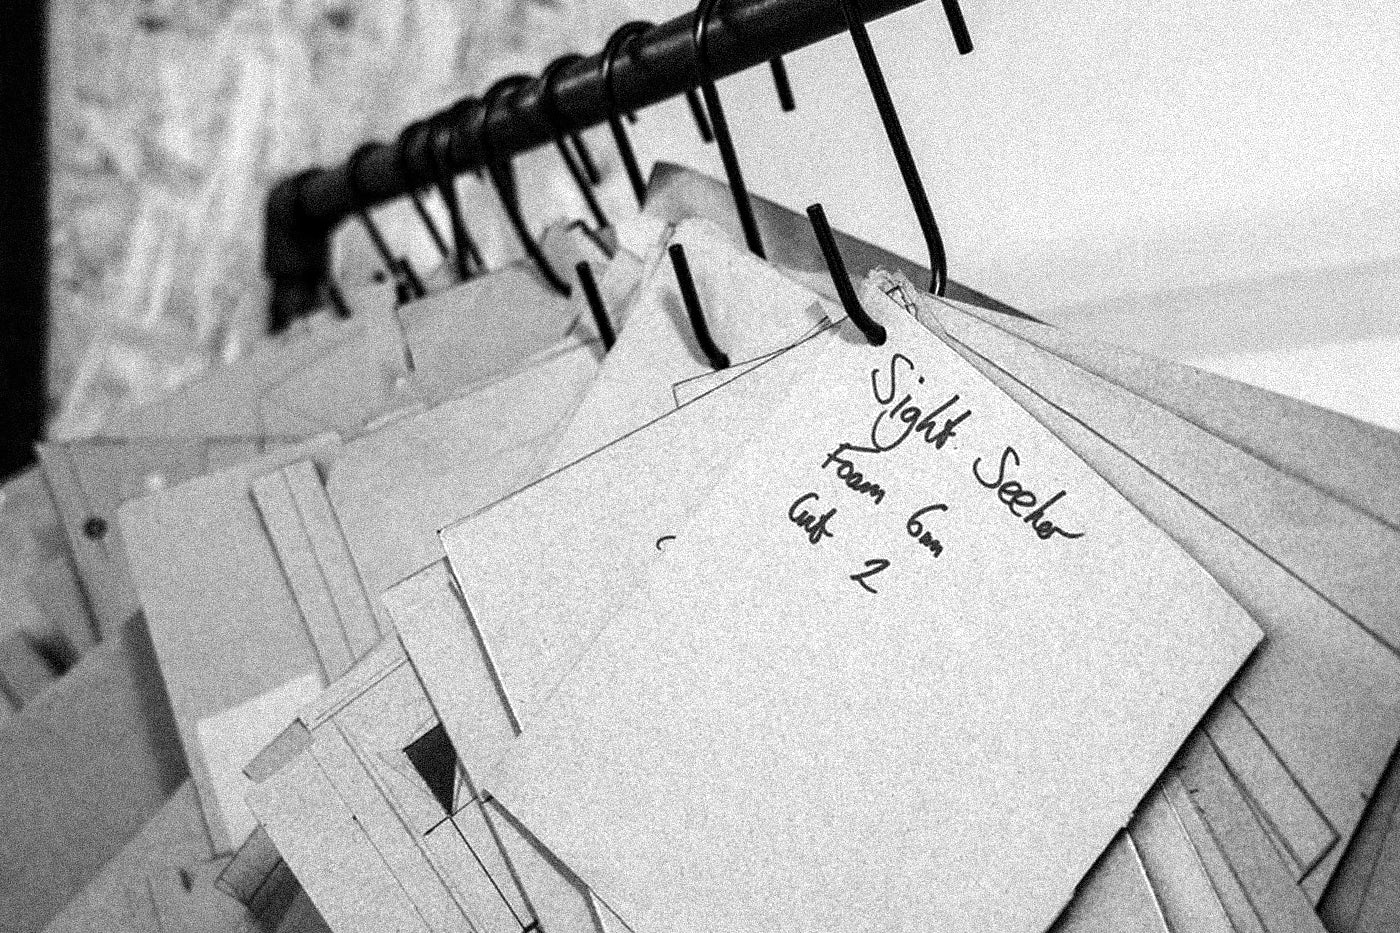 Sight Seeker
Foam 6mm
Cut 2